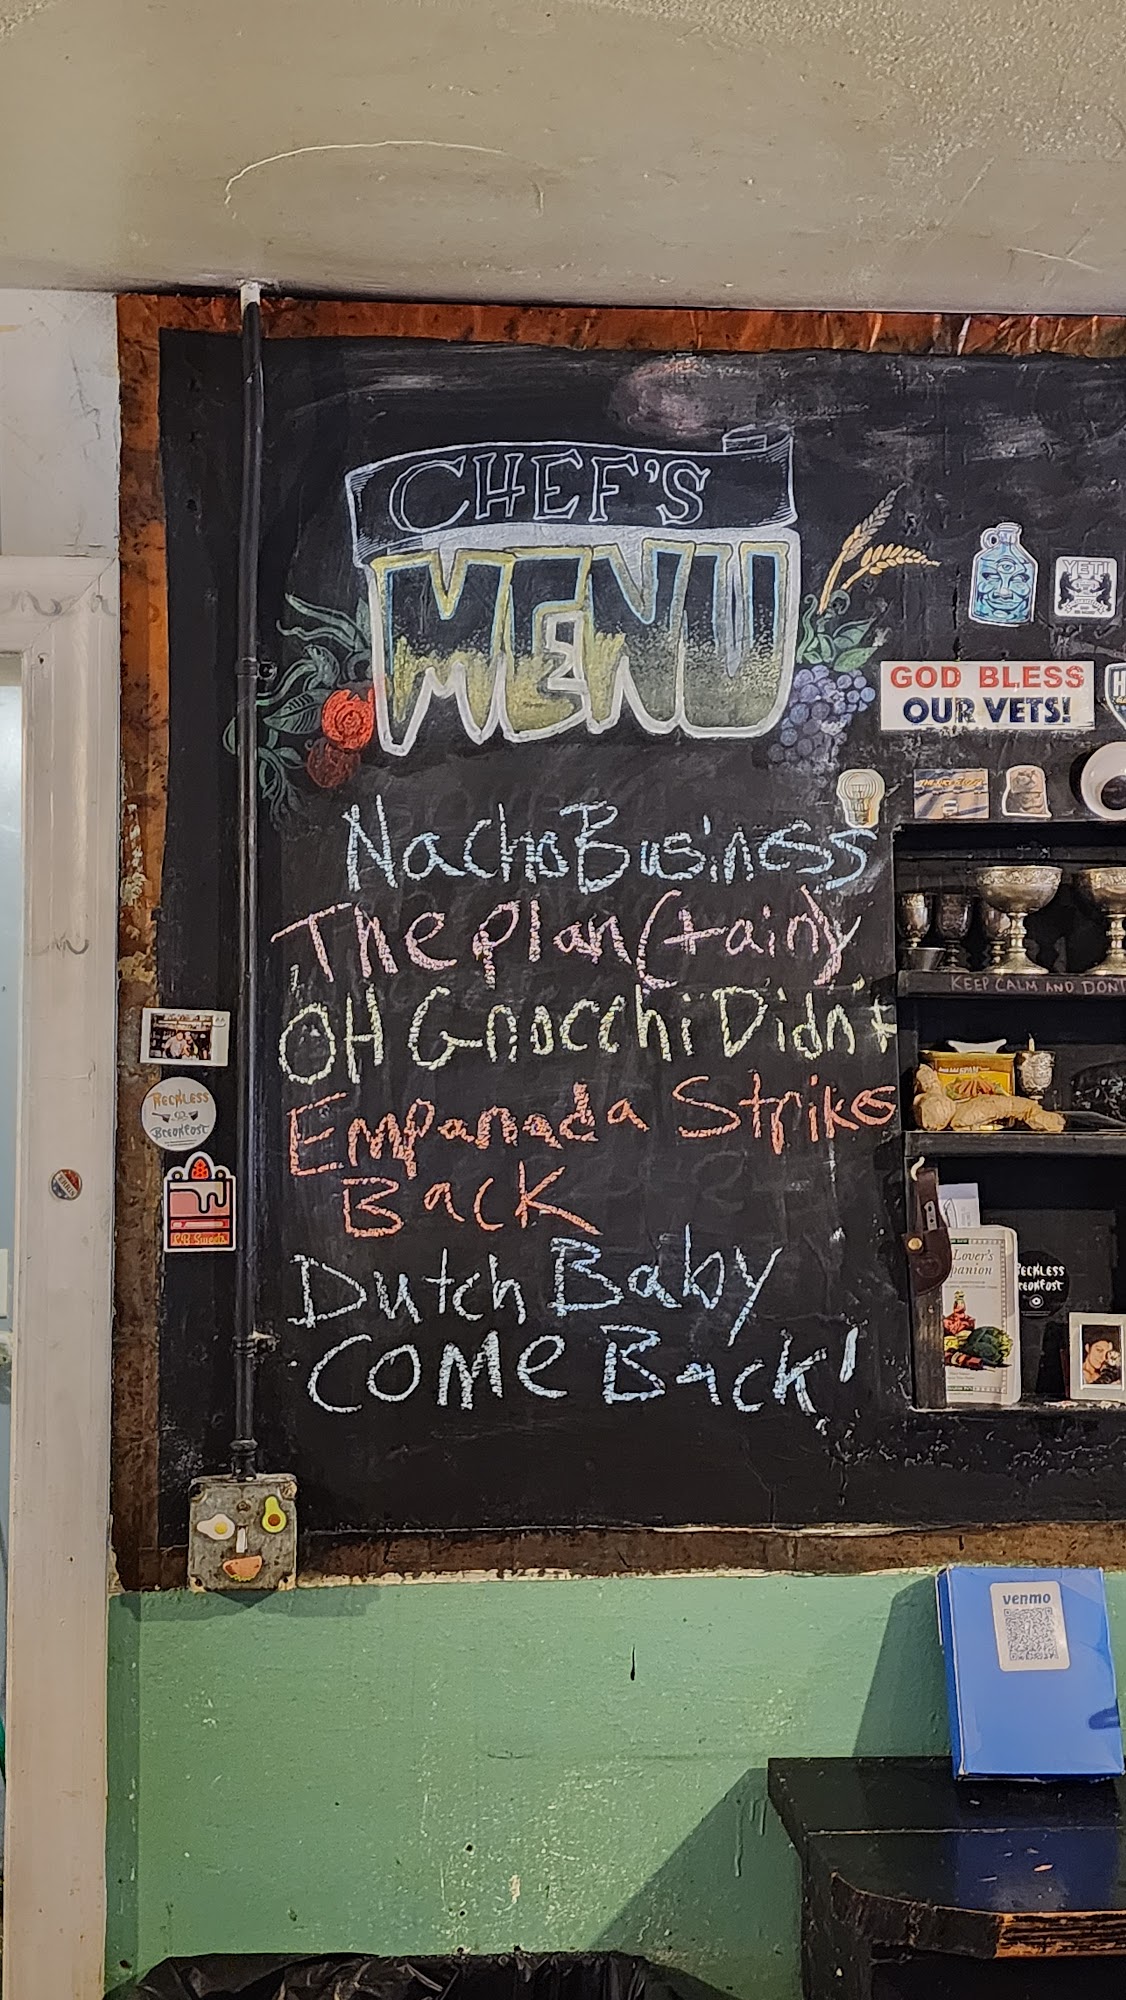 CHEF'S
MENU
Nacho Business
The Plan (+ain)
OH Gnocchi Didn't
Empanada Strikes
Back
Dutch Baby
Come Back!
YETI
GOD BLESS
OUR VETS!
KEEP CALM AND DON'T
RECKLESS
BREAKFAST
Lover's
panion
RECKLESS
BREAKFAST
venmo